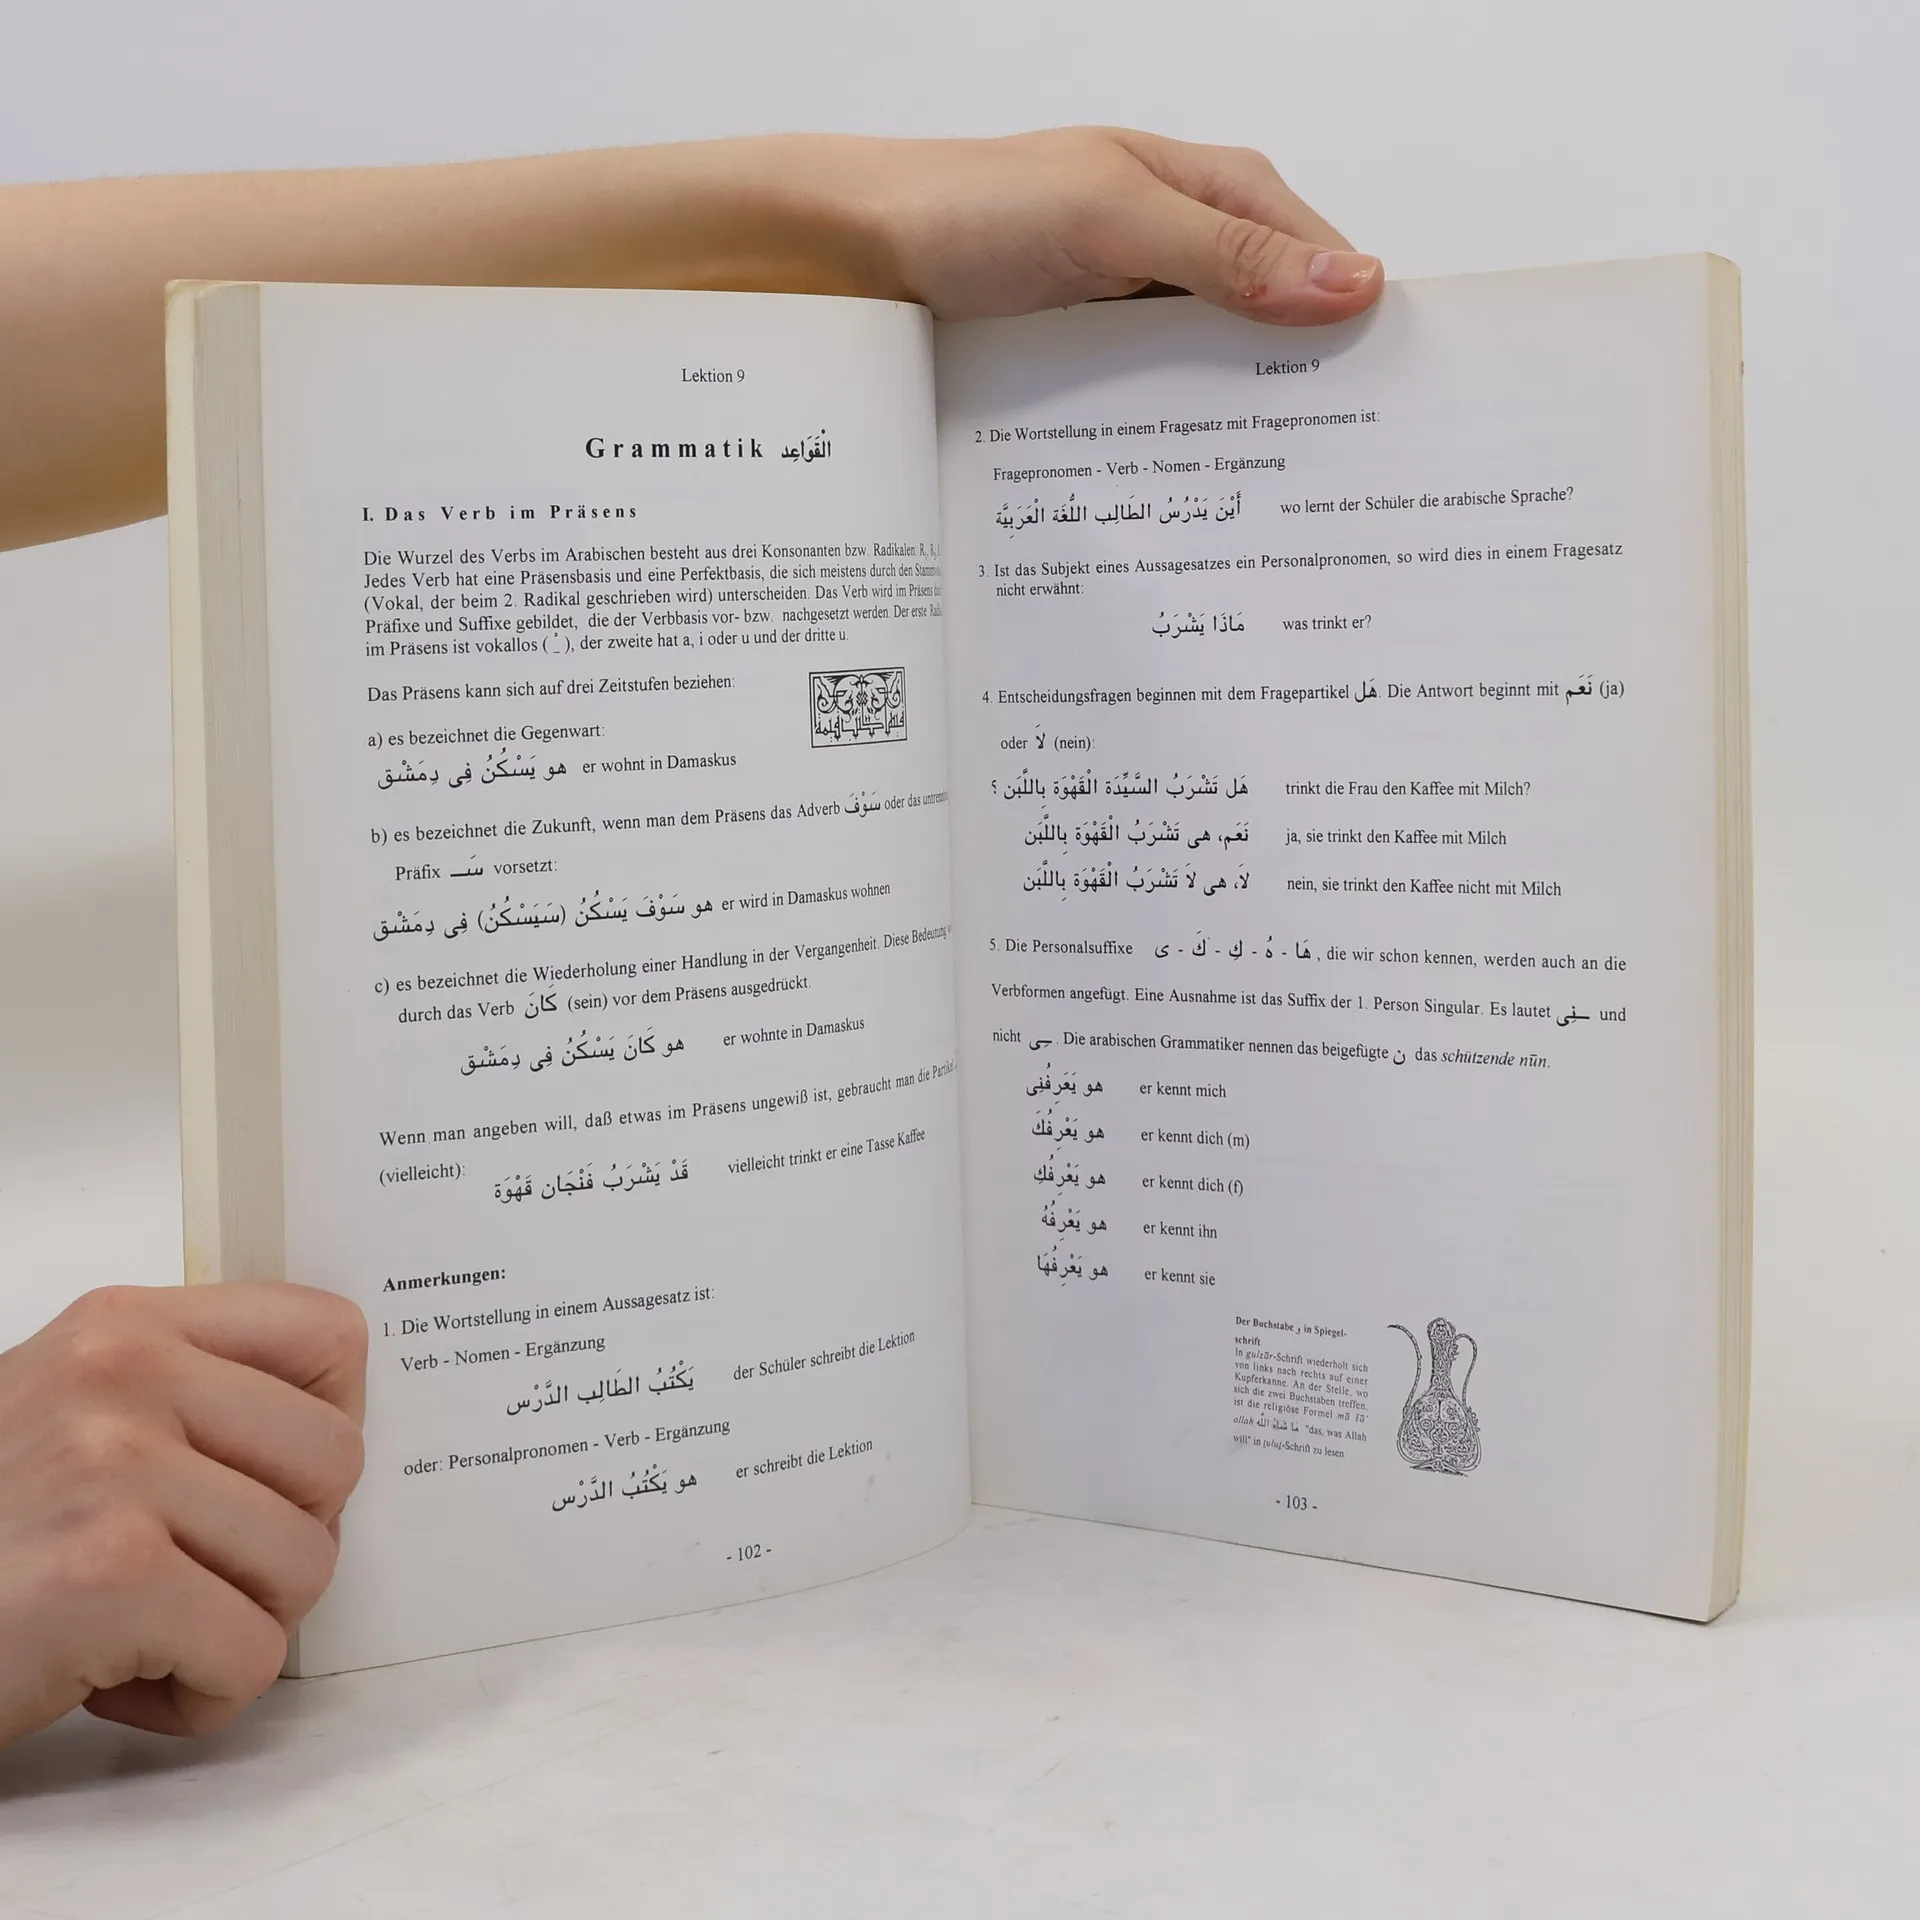 Lektion 9
Grammatik الْقَوَاعِد
I. Das Verb im Präsens
Die Wurzel des Verbs im Arabischen besteht aus drei Konsonanten bzw. Radikalen: R₁, R₂
Jedes Verb hat eine Präsensbasis und eine Perfektbasis, die sich meistens durch den
(Vokal, der beim 2. Radikal geschrieben wird) unterscheiden. Das Verb wird im Präsens
Präfixe und Suffixe gebildet, die der Verbbasis vor- bzw. nachgesetzt werden. Der erste
im Präsens ist vokallos ( ْ ), der zweite hat a, i oder u und der dritte u.
Das Präsens kann sich auf drei Zeitstufen beziehen:
a) es bezeichnet die Gegenwart:
هو يَسْكُنُ فِى دِمَشْق er wohnt in Damaskus
b) es bezeichnet die Zukunft, wenn man dem Präsens das Adverb سَوْفَ oder das
Präfix سَـ vorsetzt:
هو سَوْفَ يَسْكُنُ (سَيَسْكُنُ) فِى دِمَشْق er wird in Damaskus wohnen
c) es bezeichnet die Wiederholung einer Handlung in der Vergangenheit. Diese Bedeutung
durch das Verb كَانَ (sein) vor dem Präsens ausgedrückt.
هو كَانَ يَسْكُنُ فِى دِمَشْق er wohnte in Damaskus
Wenn man angeben will, daß etwas im Präsens ungewiß ist, gebraucht man die Partikel
(vielleicht):
قَدْ يَشْرَبُ فَنْجَان قَهْوَة vielleicht trinkt er eine Tasse Kaffee
Anmerkungen:
1. Die Wortstellung in einem Aussagesatz ist:
Verb - Nomen - Ergänzung
يَكْتُبُ الطَالِب الدَّرْس der Schüler schreibt die Lektion
oder: Personalpronomen - Verb - Ergänzung
هو يَكْتُبُ الدَّرْس er schreibt die Lektion
- 102 -
Lektion 9
2. Die Wortstellung in einem Fragesatz mit Fragepronomen ist:
Fragepronomen - Verb - Nomen - Ergänzung
أَيْنَ يَدْرُسُ الطَالِب اللُّغَة الْعَرَبِيَّة wo lernt der Schüler die arabische Sprache?
3. Ist das Subjekt eines Aussagesatzes ein Personalpronomen, so wird dies in einem Fragesatz
nicht erwähnt:
مَاذَا يَشْرَبُ was trinkt er?
4. Entscheidungsfragen beginnen mit dem Fragepartikel هَل. Die Antwort beginnt mit نَعَم (ja)
oder لاَ (nein):
هَل تَشْرَبُ السَّيِّدَة الْقَهْوَة بِاللَّبَن ؟ trinkt die Frau den Kaffee mit Milch?
نَعَم، هى تَشْرَبُ الْقَهْوَة بِاللَّبَن ja, sie trinkt den Kaffee mit Milch
لاَ، هى لاَ تَشْرَبُ الْقَهْوَة بِاللَّبَن nein, sie trinkt den Kaffee nicht mit Milch
5. Die Personalsuffixe هَا - هُ - كِ - كَ - ى , die wir schon kennen, werden auch an die
Verbformen angefügt. Eine Ausnahme ist das Suffix der 1. Person Singular. Es lautet ـنِى und
nicht ـِى. Die arabischen Grammatiker nennen das beigefügte ن das schützende nūn.
هو يَعَرِفُنِى er kennt mich
هو يَعْرِفُكَ er kennt dich (m)
هو يَعْرِفُكِ er kennt dich (f)
هو يَعْرِفُهُ er kennt ihn
هو يَعْرِفُهَا er kennt sie
Der Buchstabe و in Spiegel-
schrift
In gulzār-Schrift wiederholt sich
von links nach rechts auf einer
Kupferkanne. An der Stelle, wo
sich die zwei Buchstaben treffen,
ist die religiöse Formel mā šā'
allah مَا شَاءَ اللَّه "das, was Allah
will" in ṯuluṯ-Schrift zu lesen
- 103 -